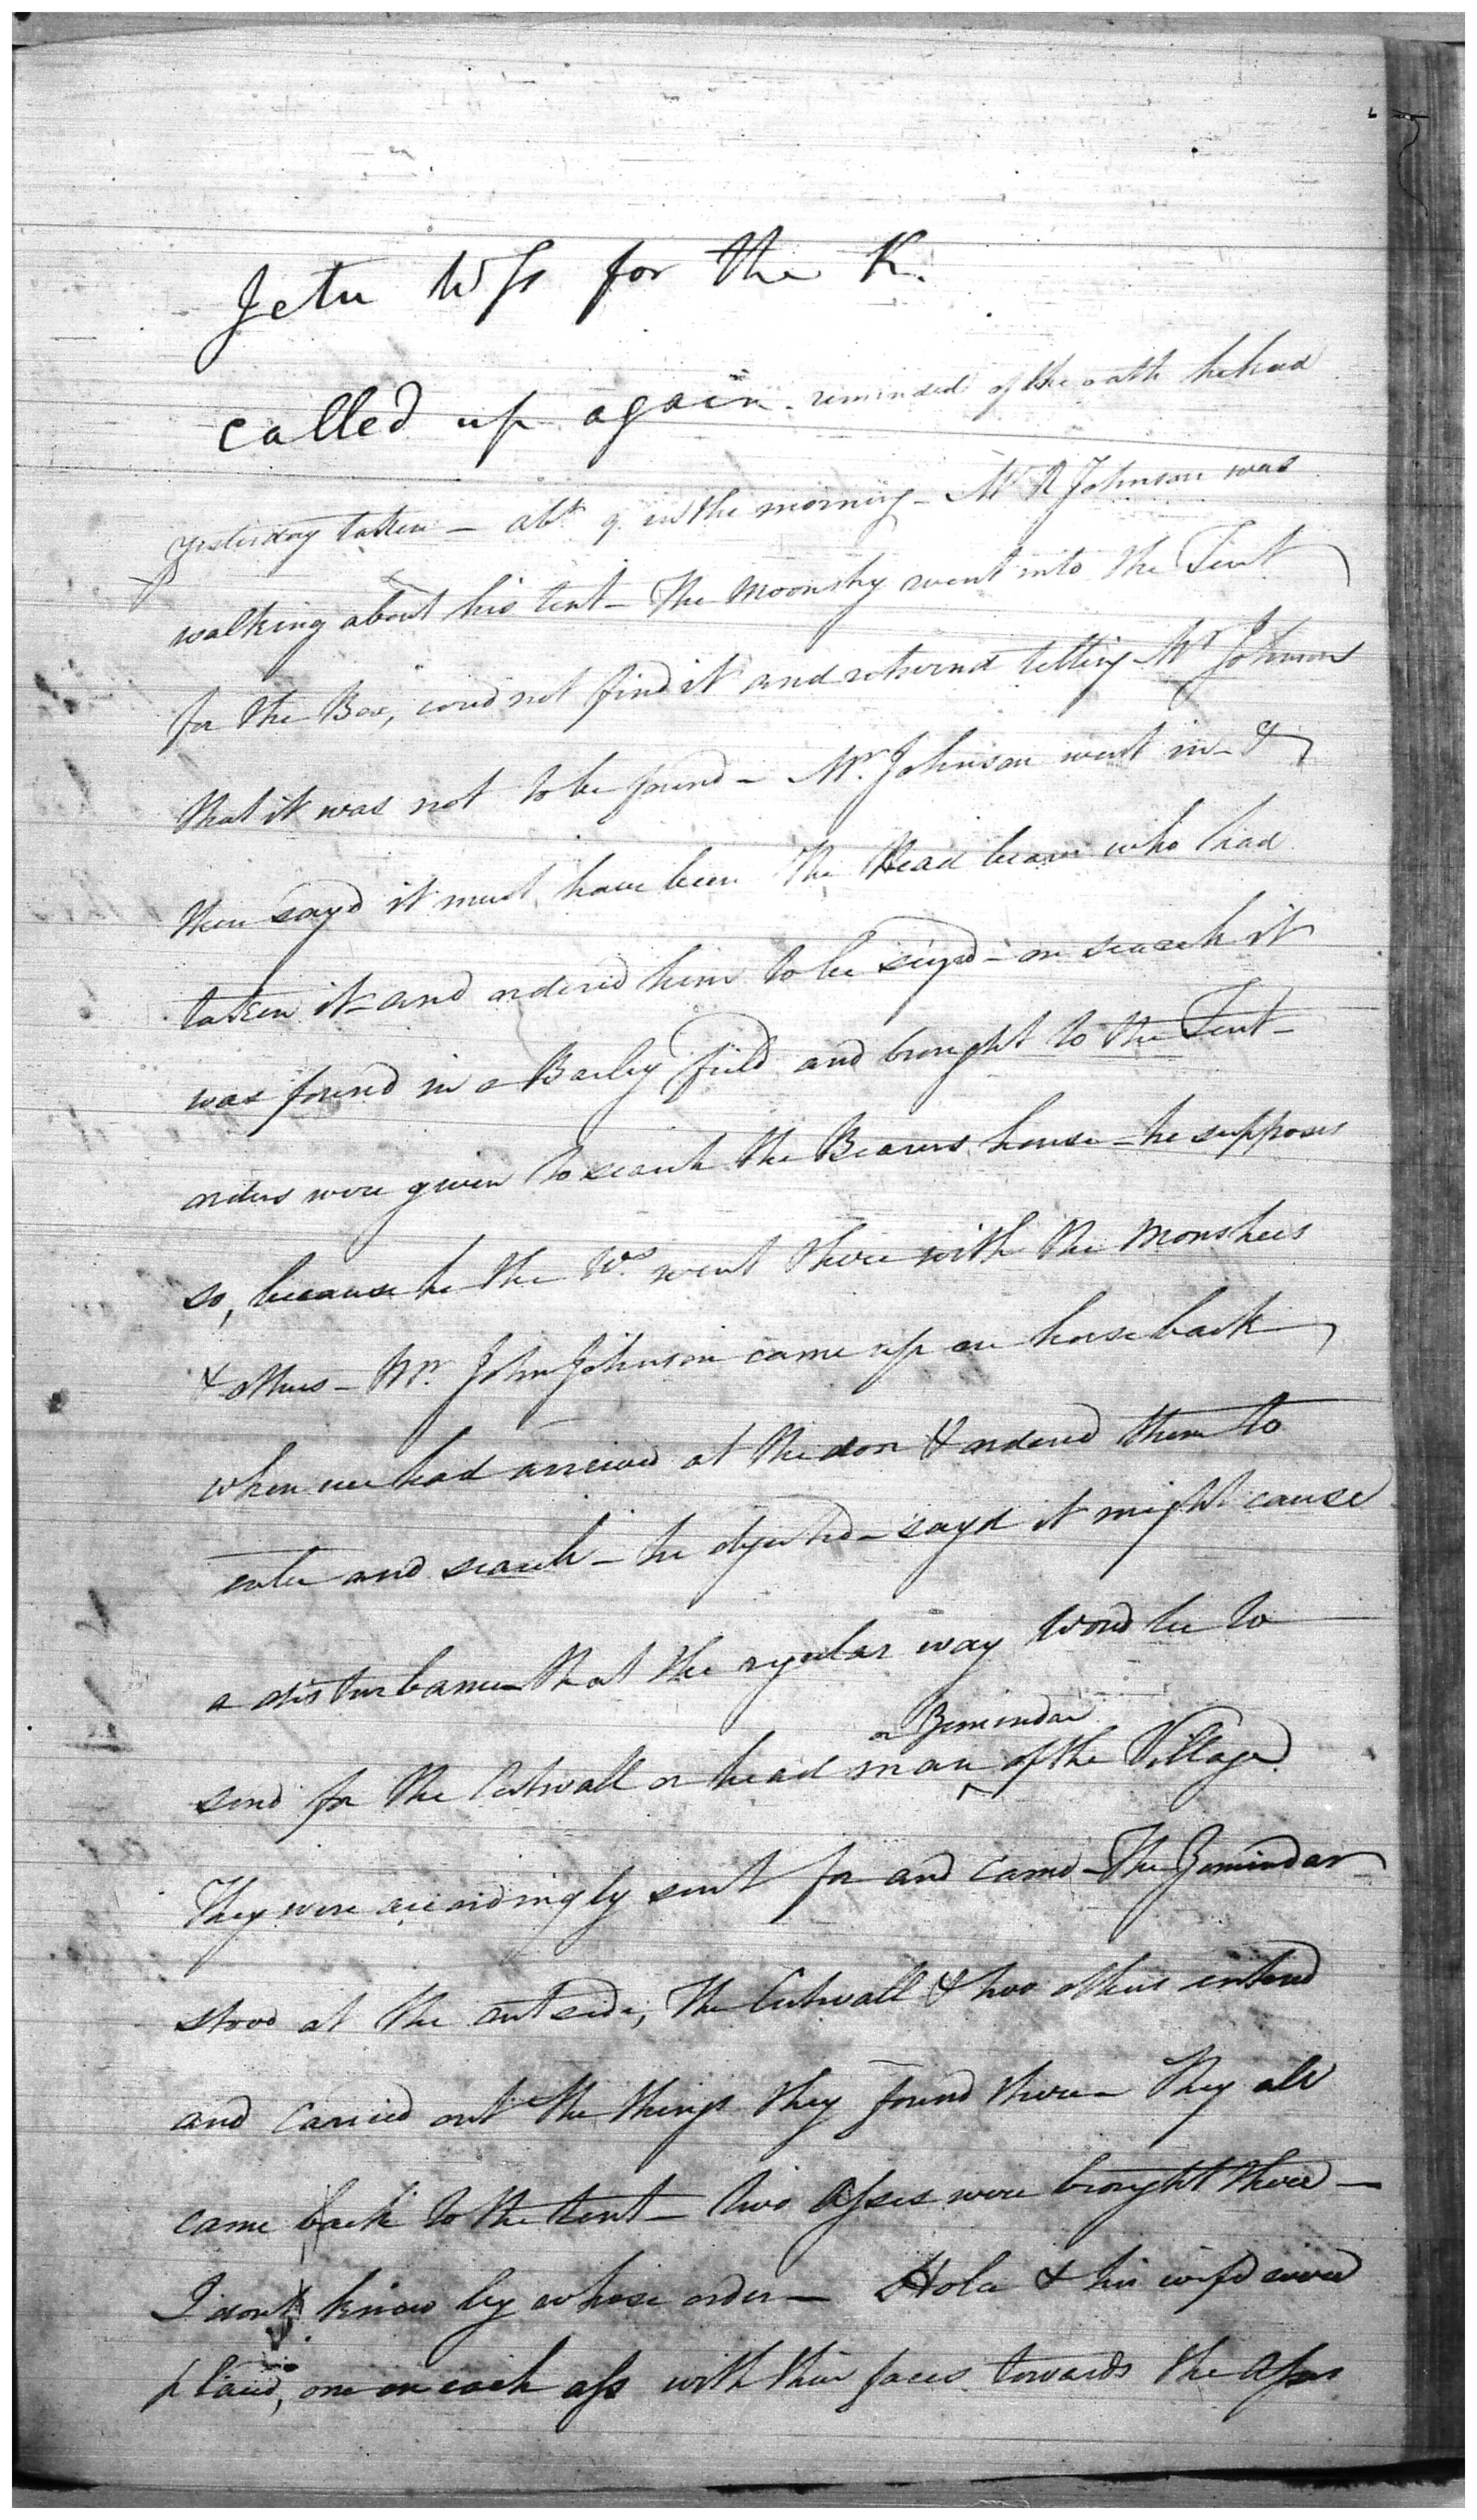 Jetu Wss for the K.
called up again - reminded of the oath he had
yesterday taken - abt 9 in the morning - Mr R Johnson was
walking about his tent - The Moonshy went into the Tent
for the Box, coud not find it and returnd telling Mr Johnson
that it was not to be found - Mr. Johnson went in - &
then sayd it must have been the Head bearer who had
taken it and ordered him to be siezed - on search it
was found in a Barley field and brought to the Tent -
orders were given to search the Bearers house - he supposes
so, because he the Ws. went there with the Monshees
& others - Mr. John Johnson came up on horseback
when we had arrived at the door & ordered them to
enter and search - he objected - sayd it might cause
a disturbance that the regular way woud be to
send for the Cutwall or head man or Zemindar of the Village
They were accordingly sent for and came - The Zemindar
stood at the outside, the Cutwall & two others entered
and carried out the things they found there - They all
came back to the tent - two Asses were brought there -
I dont know by whose order - Hola & his wife were
placed, one on each ass with their faces towards the Asses